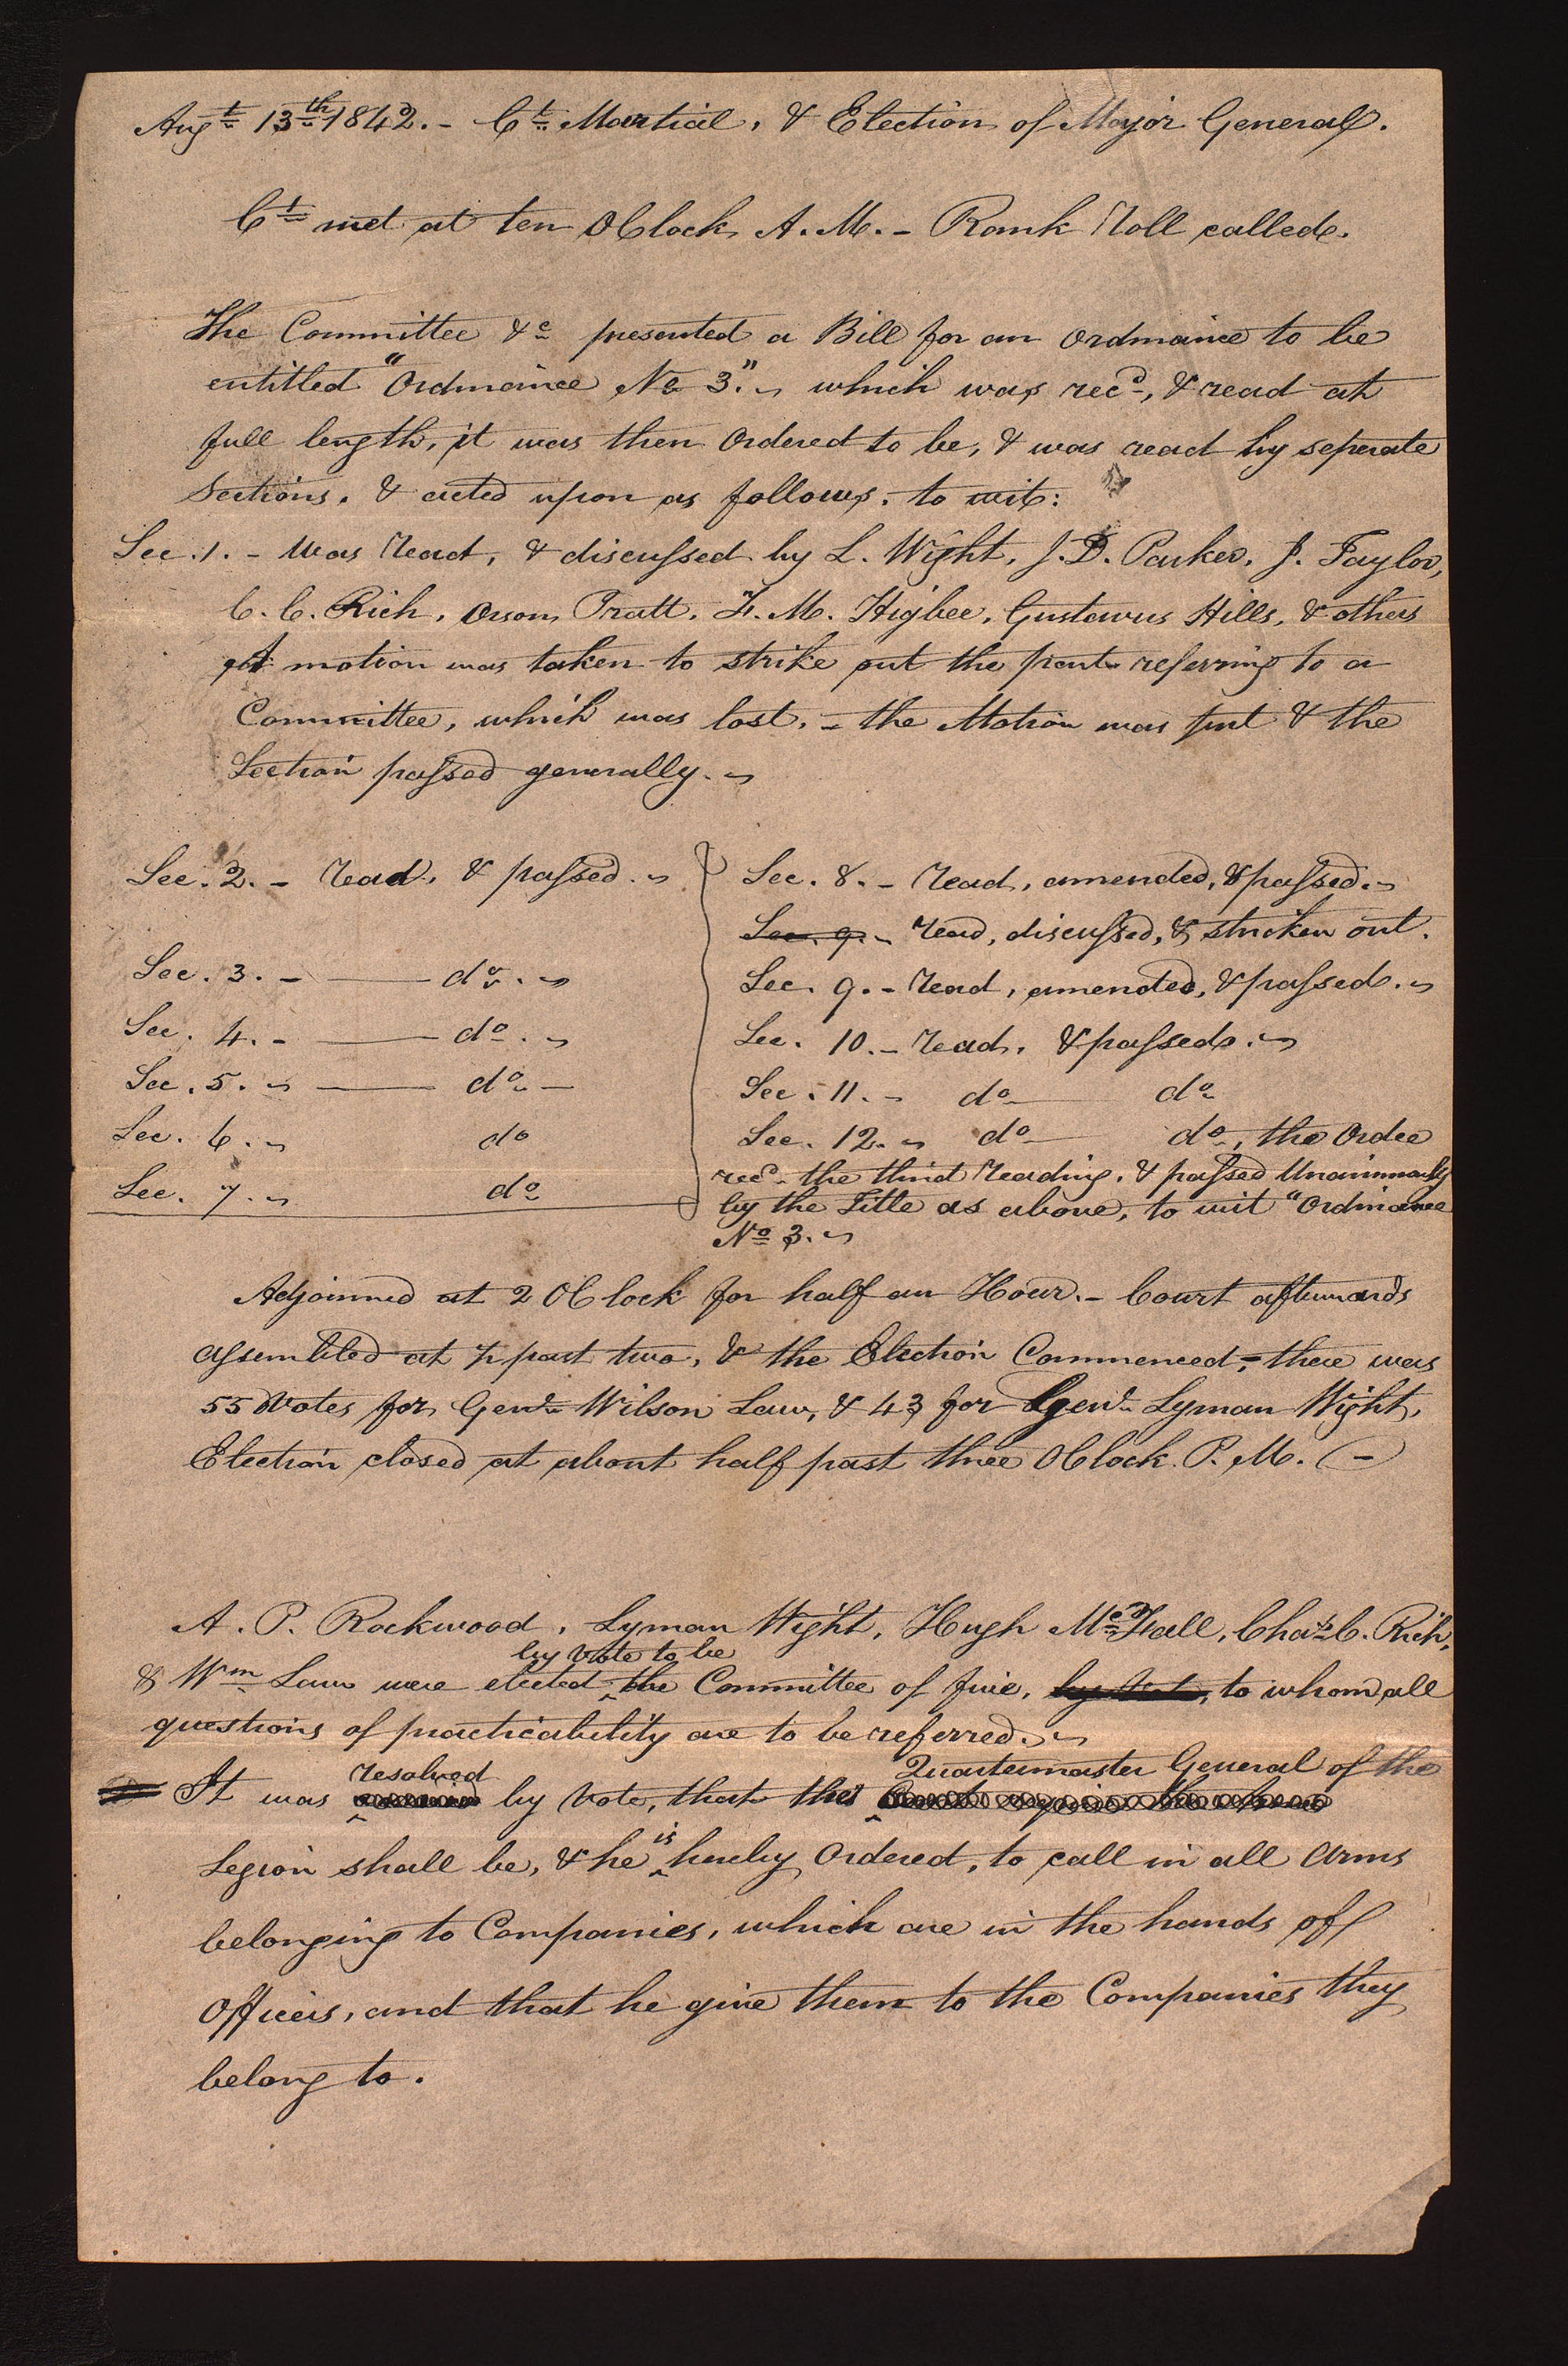 Augt 13th 1842. - Ct Martial, & Election of Major General.
Ct met at ten OClock, A. M. - Rank Roll called.
The Committee &c presented a Bill for an Ordinance to be
entitled "Ordinance No 3." which was recd, & read at
full length, it was then Ordered to be, & was read by seperate
Sections. & acted upon as follows, to wit:
Sec. 1. - Was read, & discussed by L. Wight, J. D. Parker, J. Taylor,
C. C. Rich, Orson Pratt, F. M. Higbee, Gustavus Hills, & others
A motion was taken to strike out the part referring to a
Committee, which was lost. - the Motion was put & the
Section passed generally.
Sec. 2. - read, & passed.
Sec. 3. - do.
Sec. 4. - do.
Sec. 5. do -
Sec. 6. do
Sec. 7. do
Sec. 8. - read, amended, & passed.
Sec. 9. - read, discussed, & stricken out.
Sec. 9. - read, amended, & passed.
Sec. 10. - read, & passed.
Sec. 11. - do do
Sec. 12. do do, the Order
recd the third reading, & passed Unanimously
by the Title as above, to wit "Ordinance
No 3.
Adjourned at 2 OClock for half an Hour. - Court afterwards
assembled at ½ past two, & the Election Commenced, - there were
55 Votes for Genl Wilson Law, & 43 for Genl Lyman Wight,
Election closed at about half past three OClock P. M. -
A. P. Rockwood, Lyman Wight, Hugh McFall, Chas C. Rich,
by vote to be
& Wm Law were elected the Committee of five, to whom all
questions of practicability are to be referred.
resolved Quartermaster General of the
It was by Vote, that the
Legion shall be, & he is hereby Ordered, to call in all Arms
belonging to Companies, which are in the hands of
Officers, and that he give them to the Companies they
belong to.